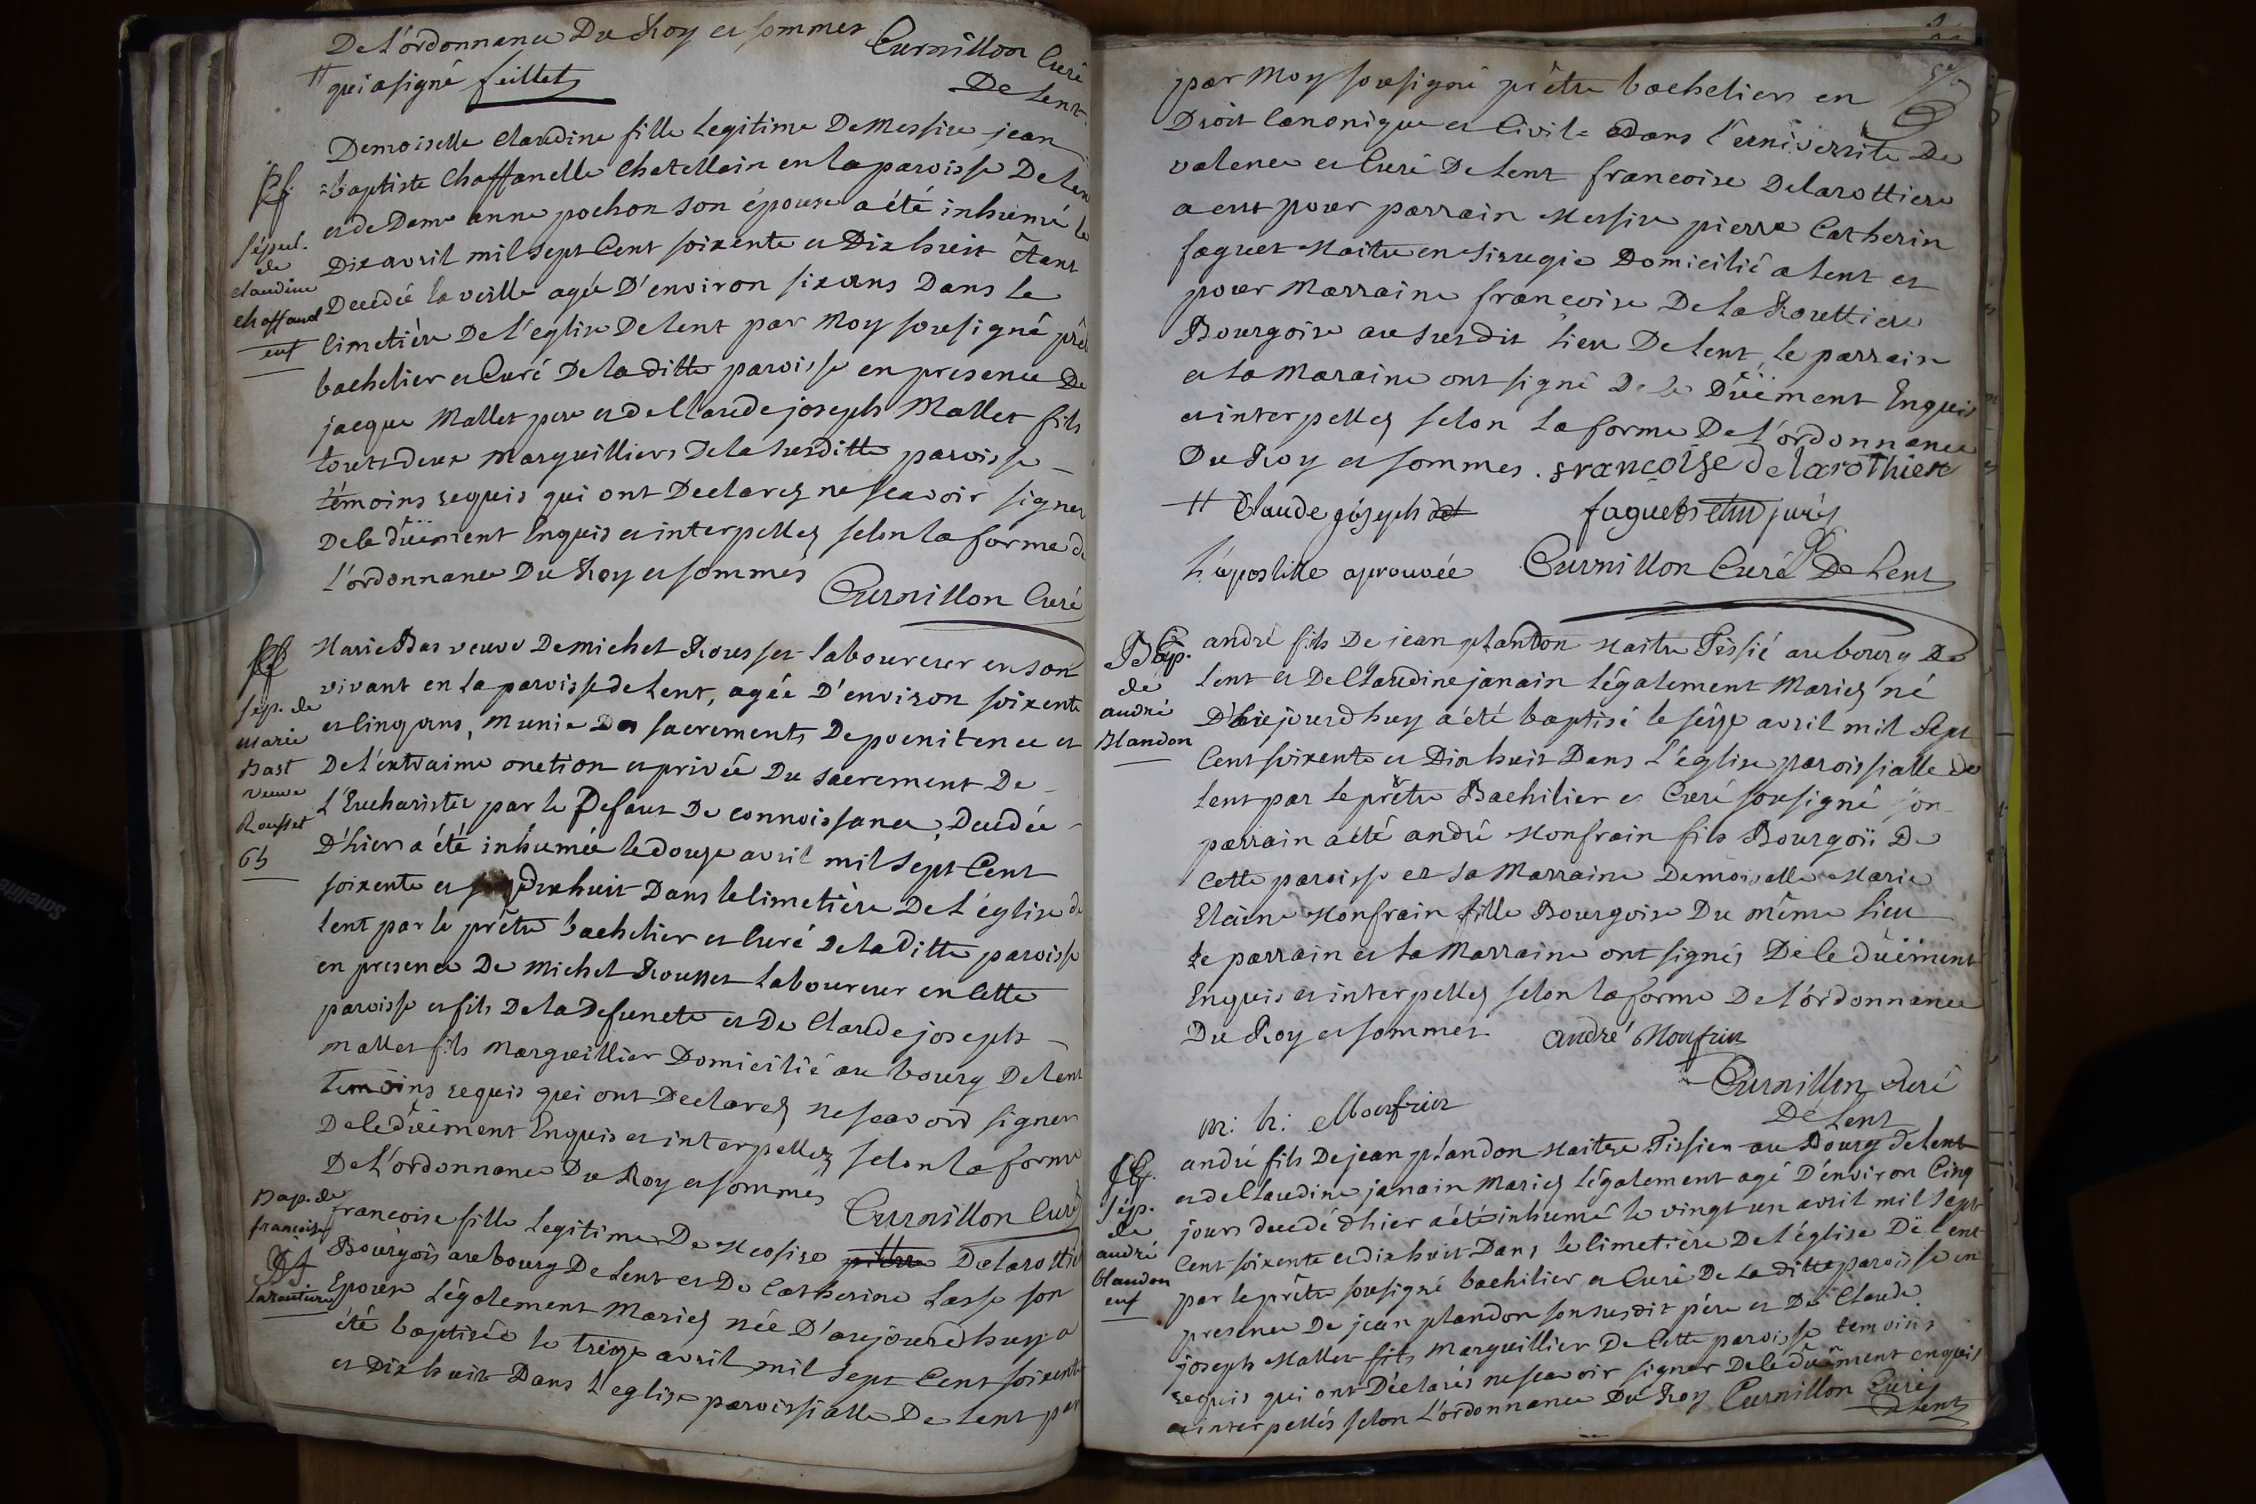 De L'ordonnance Du Roy et sommes Curnillon Curé
qui a signé feillet De Lent
Demoiselle Claudine fille Legitime De Messire jean
baptiste Chaffanelle Chatellain en la paroisse De Lent
et de Dame anne pochon son épouse a été inhumé le
Dix avril mil sept Cent soixente et Dix huit êtant
Decedée la veille agée D'environ six ans Dans Le
Cimetière De L'eglise De Lent par Moy sousigné prêt
bachelier et Curé De la ditte paroisse en presence De
jacque Mallet pere et de Claude joseph Mallet fils
touts deux Marguilliers De la susditte paroisse
têmoins requis qui ont Declarez ne scavoir signer
De le düëment Enquis et interpellez selon la forme de
L'ordonnance Du Roy et sommes Curnillon Curé
sépul.
de
claudine
chaffand
Marie Bas veuve De michel Rousset Laboureur en son
vivant en La paroisse de Lent, agée D'environ soixente
et Cinq ans, Munie Des sacrements De poenitence et
De L'extraime onction et privée Du sacrement De
L'Eucharistie par le Defaut De connoissance, Decedée
D'hier a été inhumée le douze avril mil Sept Cent
soixente et Dixhuit Dans le Cimetière De L'église de
Lent par le prêtre bachelier et Curé De la Ditte paroisse
en presence De Michel Rousset Laboureur en Cette
paroisse et fils De la Defuncte et De Claude joseph
mallet fils Marguillier Domicilié au bourg De Lent
temoins requis qui ont Declarez ne scavoir signer
De le düëment Enquis et interpellez selon la forme
De L'ordonnance Du Roy et sommes Curnillon Curé
sép. de
marie
Bast
veuve
Rousset
65
francoise fille Legitime De Messire pierre Delarottie
Bourgois au bourg De Lent et De Catherine Lasse son
Epouse Légalement Mariez née D'aujourd'huy a
été baptisée le trèze avril mil Sept Cent soixente
et Dix huit Dans L'eglise paroissialle De Lent par
Bap. de
francoise
Larautiere
par Moy sousigné prêtre bachelier en
Droit Canonique et Civile dans L'université De
valence et Curé De Lent francoise Delarottiere
a eut pour parrain Messire pierre Catherin
faguet Maitre en sirugie Domicilié a Lent et
pour Marraine francoise De La Routtiere
Bourgoise au susdit Lieu De Lent, le parrain
et la Maraine ont signé De le Düëment Enquis
et interpellez selon la forme De L'ordonnance
Du Roy et sommes. francoise delarothiere
Claude jóseph faguet chir jurés
L'apostille aprouvée Curnillon Curé De Lent
andré fils De jean plandon Maitre Tissié au bourg De
Lent et De Claudine janain Légalement Mariez né
D'aujourdhuy a été baptisé le sèze avril mil Sept
Cent soixente et Dix huit Dans L'église paroissialle de
Lent par Le prêtre Bachilier et Curé sousigné son
parrain a été andré Monfrain fils Bourgoii De
Cette paroisse et sa Marraine Demoiselle Marie
Elaine Monfrain fille Bourgoise Du même Lieu
Le parrain et La Marraine ont signés De le düëment
Enquis et interpellez selon la forme De L'ordonnance
Du Roy et sommes andré Monfrin
Curnillon Curé
m: h: Monfrin De Lent
Bap.
de
andré
Blandon
andré fils De jean plandon Maitre Tissien au Bourg de Lent
et de Claudine janain Mariez Légalement agé D'environ Cinq
jours decedé d'hier a été inhumé le vingt un avril mil Sept
Cent soixente et dix huit Dans le Cimetière De L'église De Lent
par le prêtre sousigné bachilier et Curé De La ditte paroisse en
presence De jean plandon son susdit pére et De Claude
joseph Mallet fils Marguillier De Cette paroisse temoins
requis qui ont Déclarés ne scavoir signer De le dûëment enquis
et interpellés selon L'ordonnance Du Roy Curnillon Curé
De Lent
sép.
de
andré
blandon